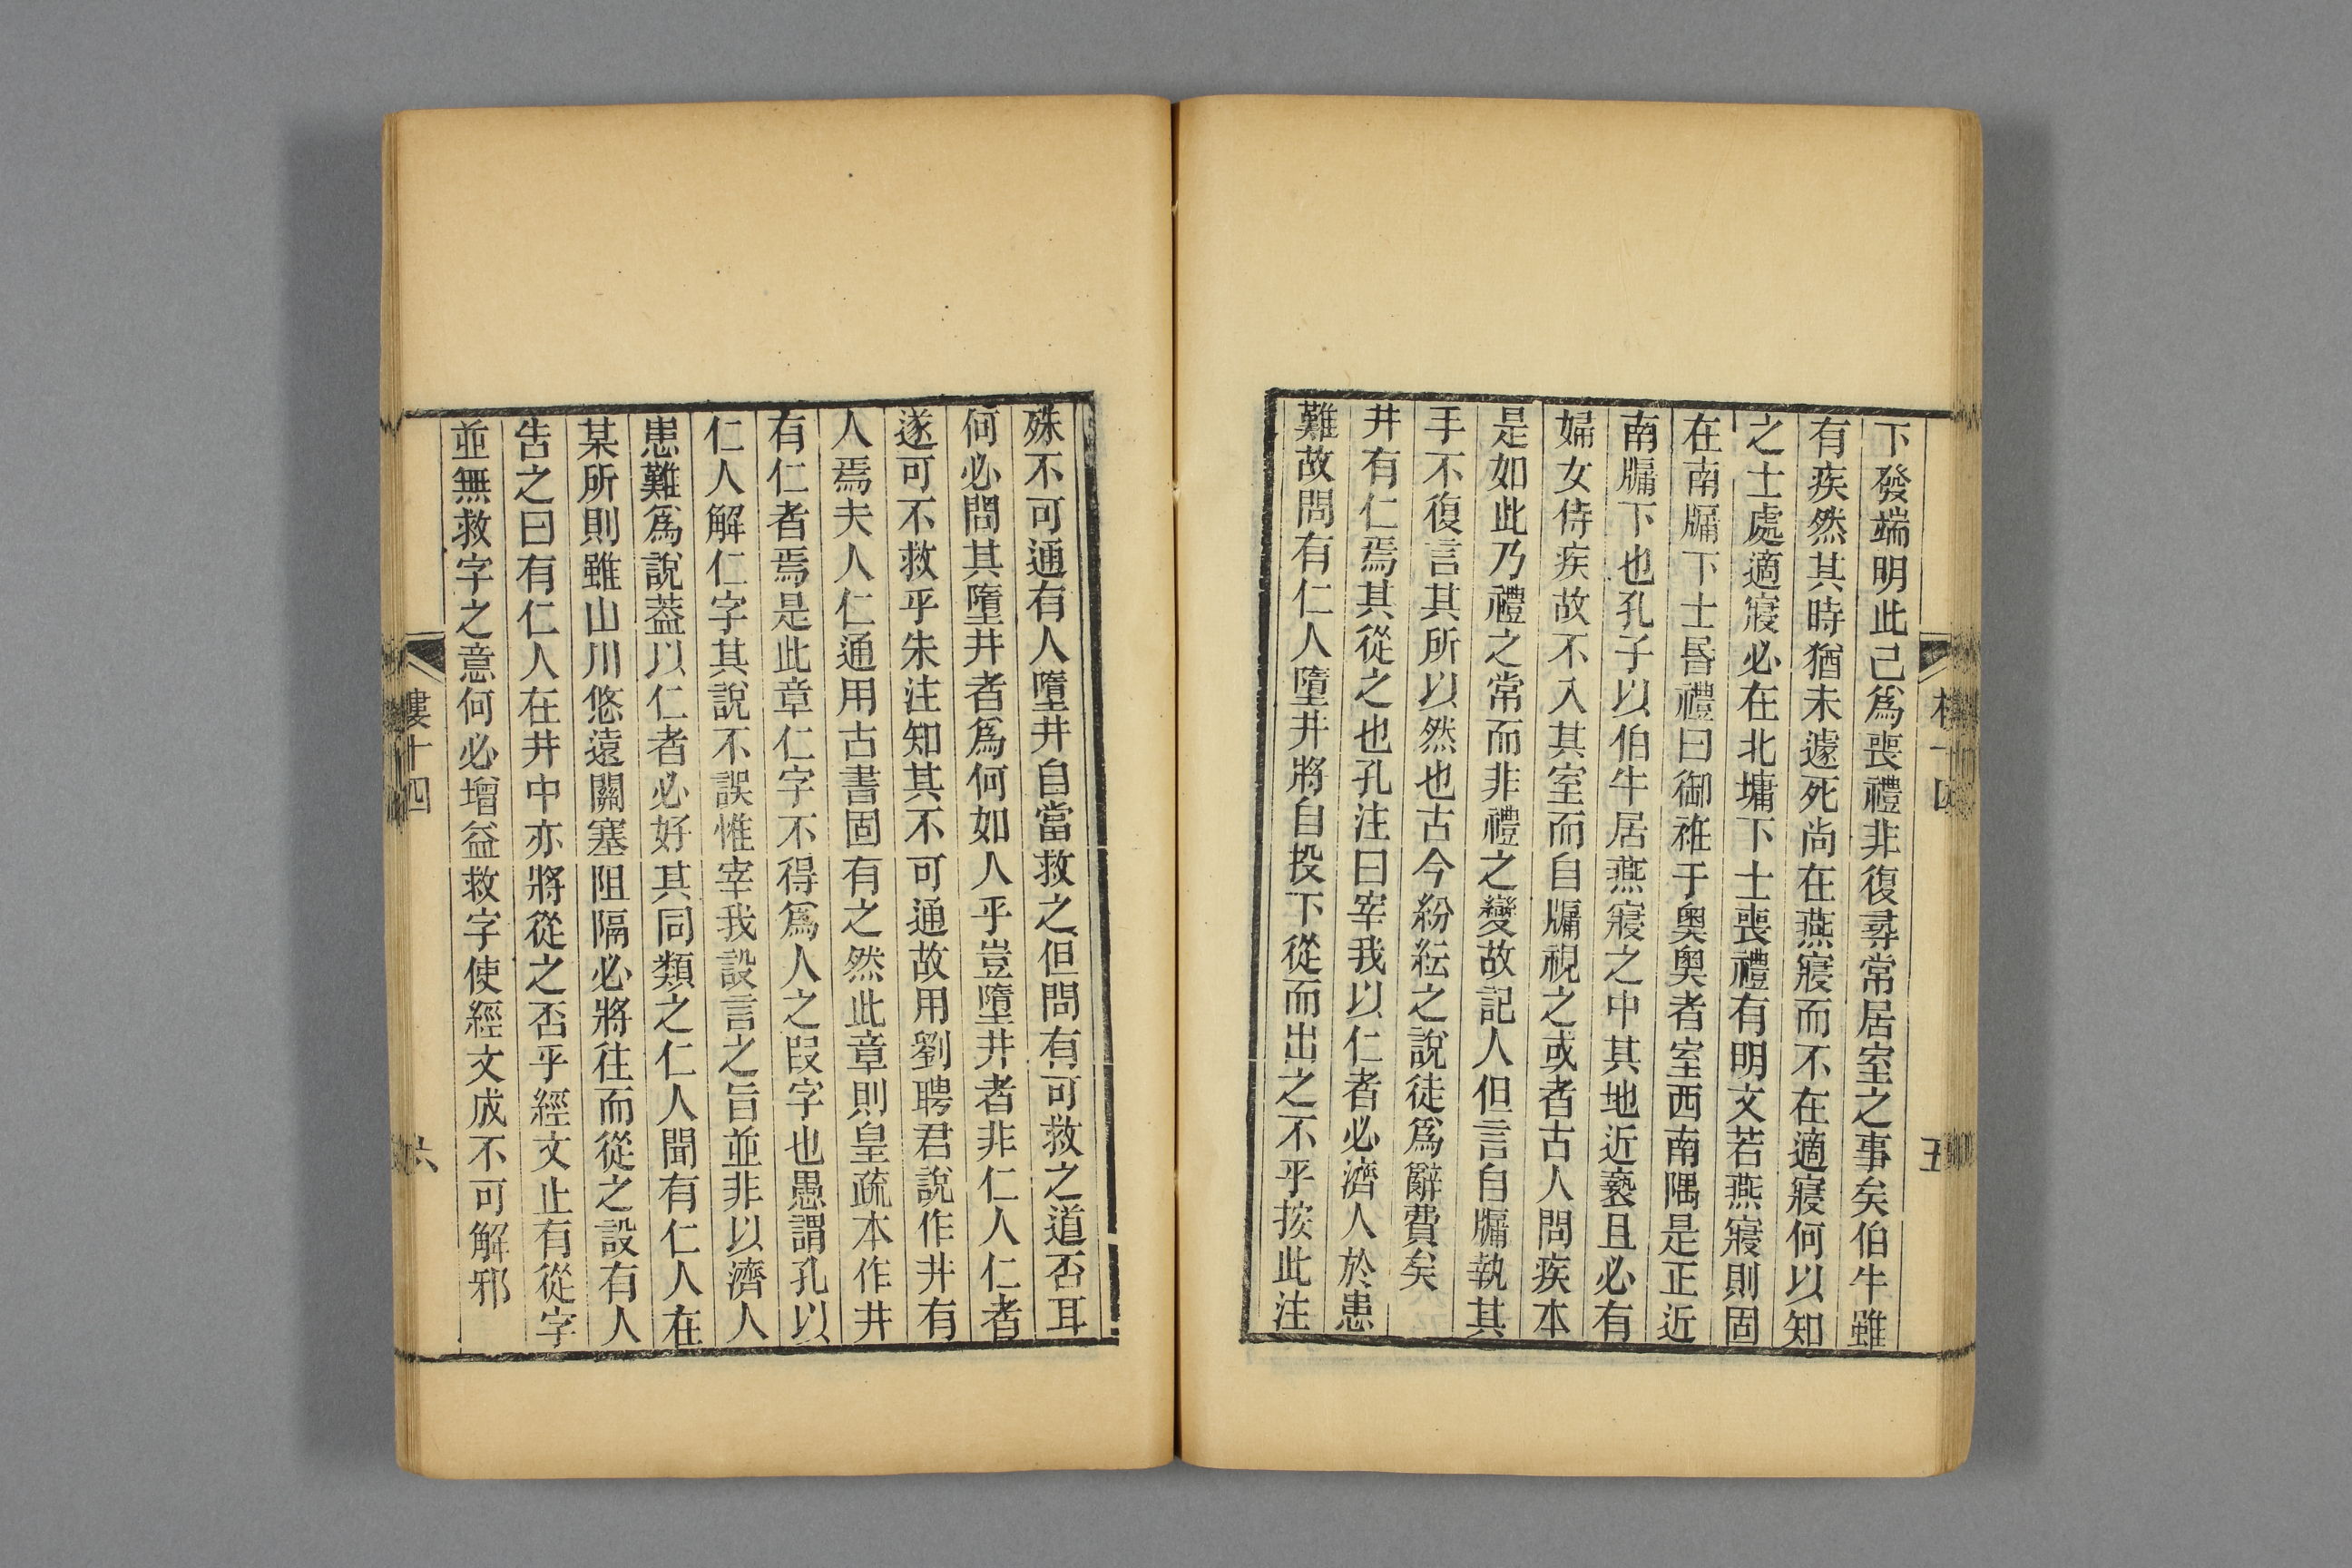 下發端明此己爲喪禮非復尋常居室之事矣伯牛雖
有疾然其時猶未遽死尚在燕寢而不在適寢何以知
之士處適寢必在北墉下士喪禮有明文若燕寢則固
在南牖下士昏禮曰御衽于奧奧者室西南隅是正近
南牖下也孔子以伯牛居燕寢之中其地近褻且必有
婦女侍疾故不入其室而自牖視之或者古人問疾本
是如此乃禮之常而非禮之變故記人但言自牖執其
手不復言其所以然也古今紛紜之說徒爲辭費矣
井有仁焉其從之也孔注曰宰我以仁者必濟人於患
難故問有仁人墮井將自投下從而出之不乎按此注
五
殊不可通有人墮井自當救之但問有可救之道否耳
何必問其墮井者爲何如人乎豈墮井者非仁人仁者
遂可不救乎朱注知其不可通故用劉聘君說作井有
人焉夫人仁通用古書固有之然此章則皇疏本作井
有仁者焉是此章仁字不得爲人之叚字也愚謂孔以
仁人解仁字其說不誤惟宰我設言之旨並非以濟人
患難爲說葢以仁者必好其同類之仁人聞有仁人在
某所則雖山川悠遠關塞阻隔必將往而從之設有人
告之曰有仁人在井中亦將從之否乎經文止有從字
並無救字之意何必增益救字使經文成不可解邪
樓十四
六